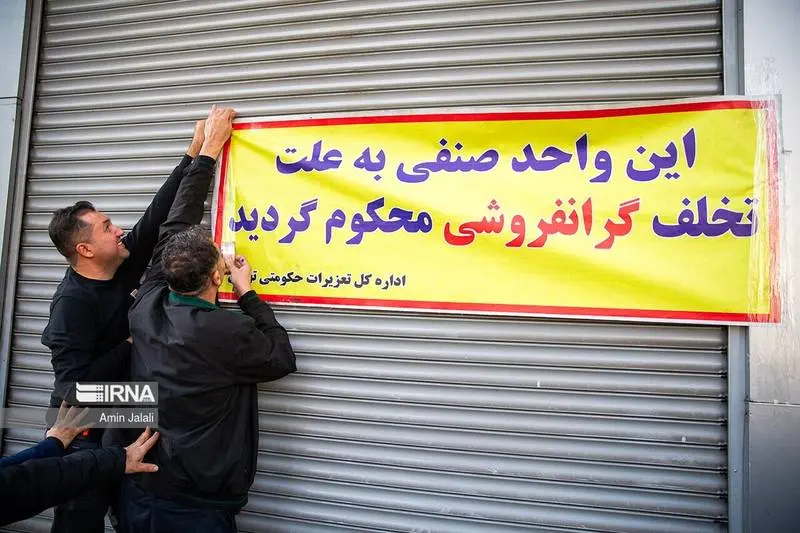 این واحد صنفی به علت
تخلف گرانفروشی محکوم گردید
اداره کل تعزیرات حکومتی
IRNA
Amin Jalali